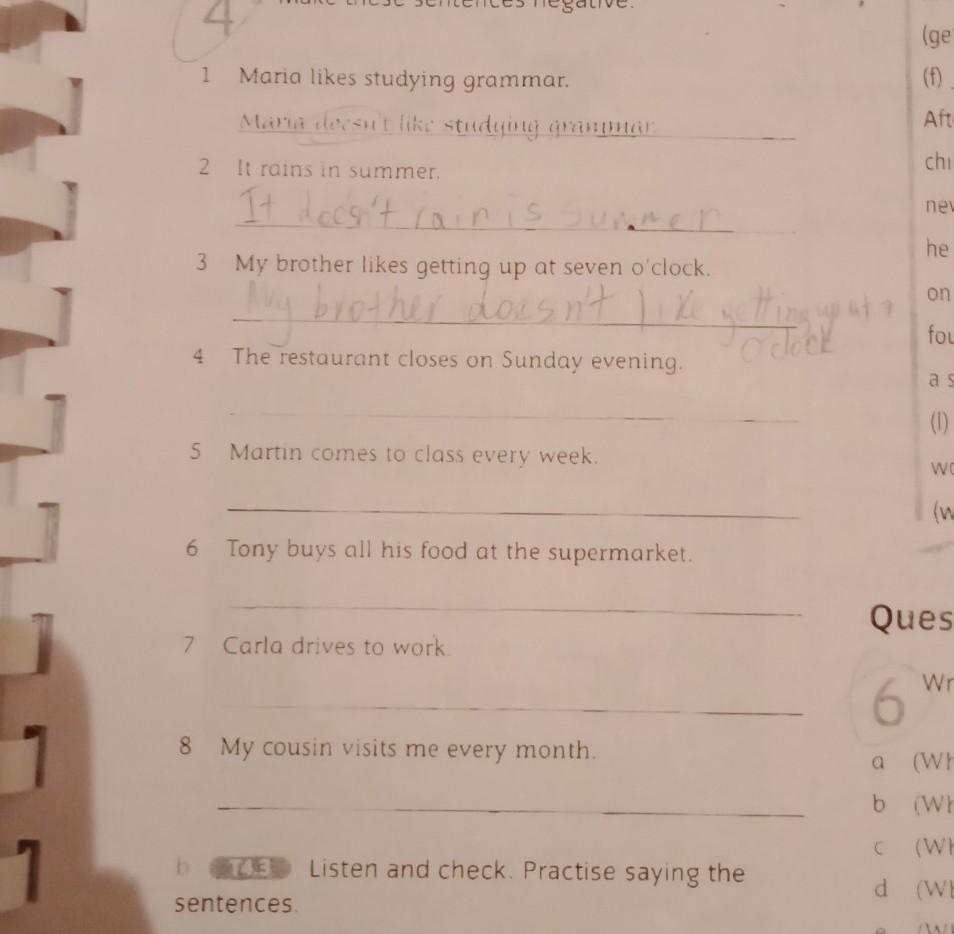 4 Make these sentences negative.
1 Maria likes studying grammar.
Maria doesn't like studying grammar.
2 It rains in summer.
It doesn't rain is summer
3 My brother likes getting up at seven o'clock.
My brother doesn't like getting up at 7
o'clock
4 The restaurant closes on Sunday evening.
5 Martin comes to class every week.
6 Tony buys all his food at the supermarket.
7 Carla drives to work.
8 My cousin visits me every month.
b T4.3 Listen and check. Practise saying the
sentences.
(ge
(f)
Aft
chi
nev
he
on
fou
a s
(l)
wo
(w
Ques
6 Wr
a (Wh
b (Wh
c (Wh
d (Wh
e (Wh